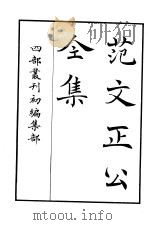 范文正公
全集
四部叢刊初編集部
mtoou.info